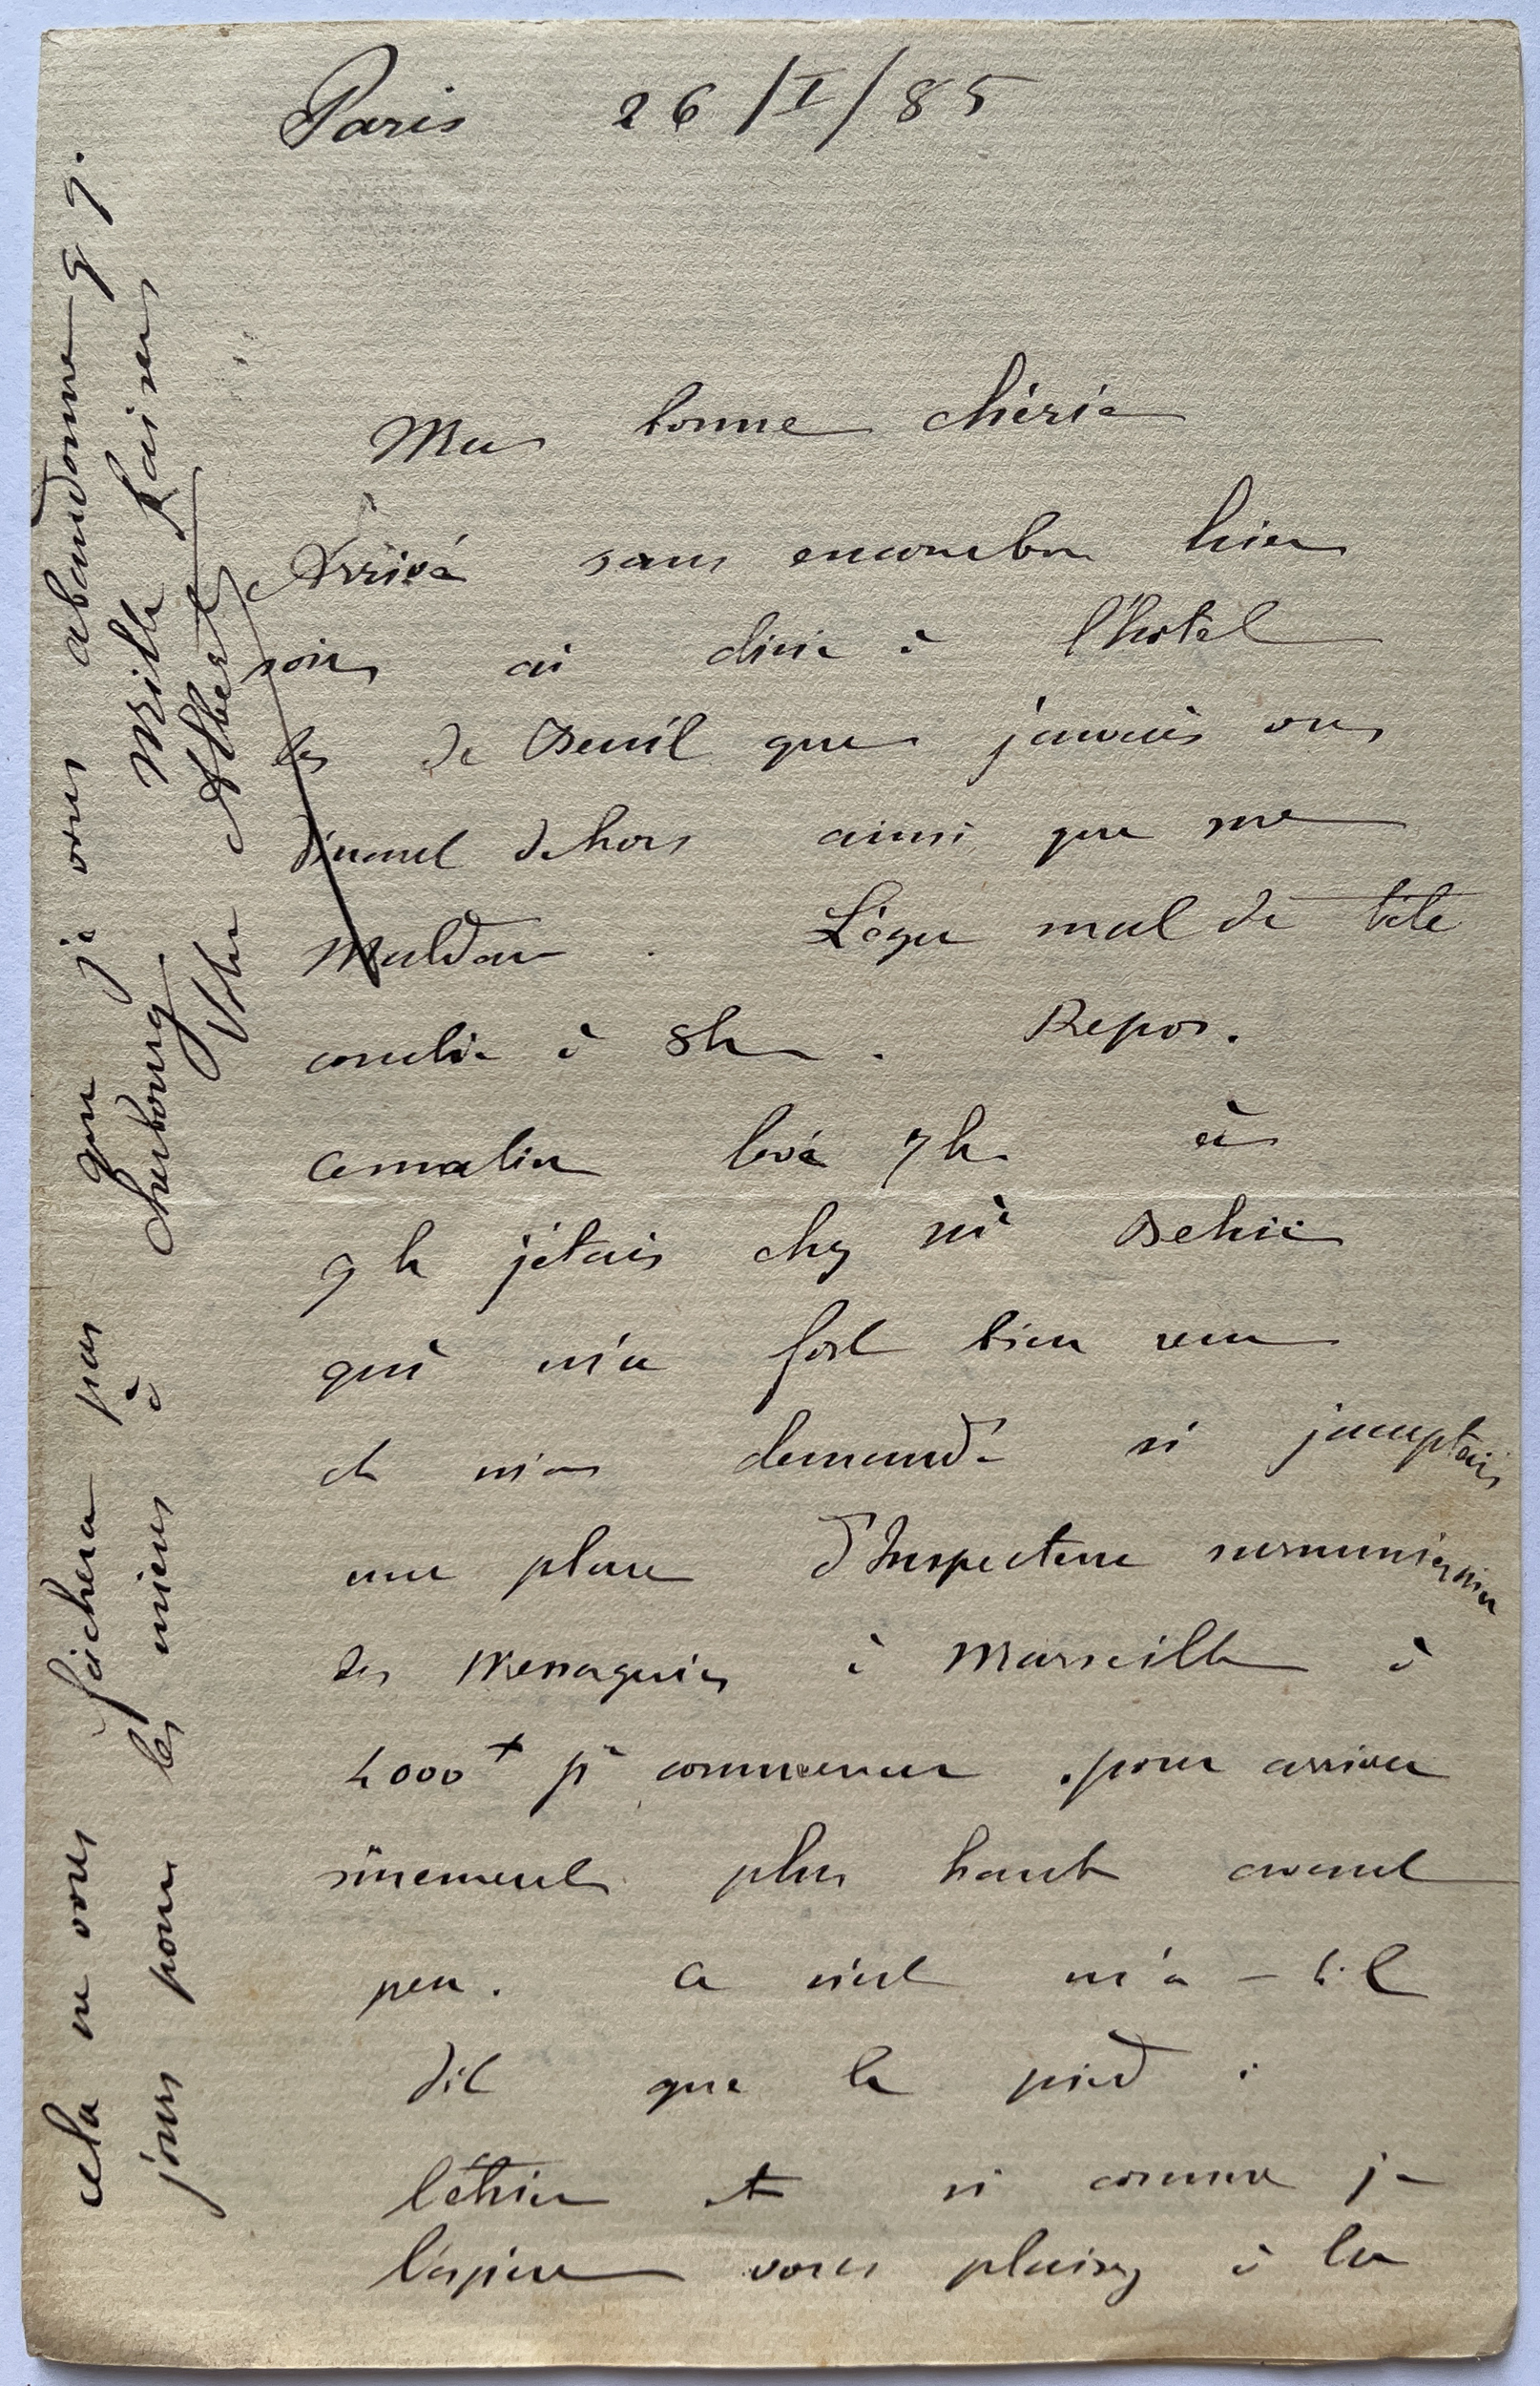 Paris 26/I/85
Ma bonne chérie
Arrivé sans encombre hier
soir ai diné à l'hotel
les de Breuil que j'avais vus
dinant dehors ainsi que me
Léger mal de tête
couché à 8h. Repos.
ce matin levé 7h. à
9h j'étais chez Mr Behic
qui m'a fort bien reçu
et m'a demandé si j'acceptais
une place d'Inspecteur surnuméraire
des Messageries à Marseille à
4000 + pr commencer . pour arriver
surement plus haut avant
peu. Ce n'est m'a-t-il
dit que le pied à
l'étrier et si comme je
l'espère vous plaisez à la
cela ne vous fachera pas que je vous abandonne qq.
jours pour les miens à Cherbourg. Mille baisers
Votre Albert